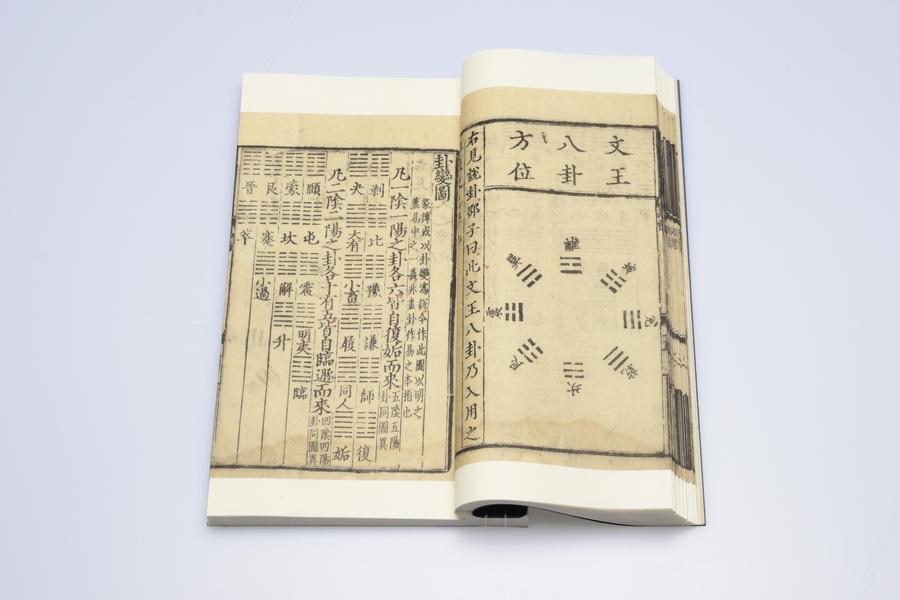 文王
八卦
方位
離
坤
兌
乾
坎
艮
震
巽
右見說卦邵子曰此文王八卦乃入用之
卦變圖
彖傳或以卦變為說今作此圖以明之
蓋易中之一義非畫卦作易之本指也
凡一陰一陽之卦各六皆自復姤而來
五陰五陽
卦同圖異
剝 比 豫 謙 師 復
夬 大有 小畜 履 同人 姤
凡二陰二陽之卦各十有五皆自臨遯而來
四陰四陽
卦同圖異
頤 屯 震 明夷 臨
蒙 坎 解 升
艮 蹇 小過
晉 萃